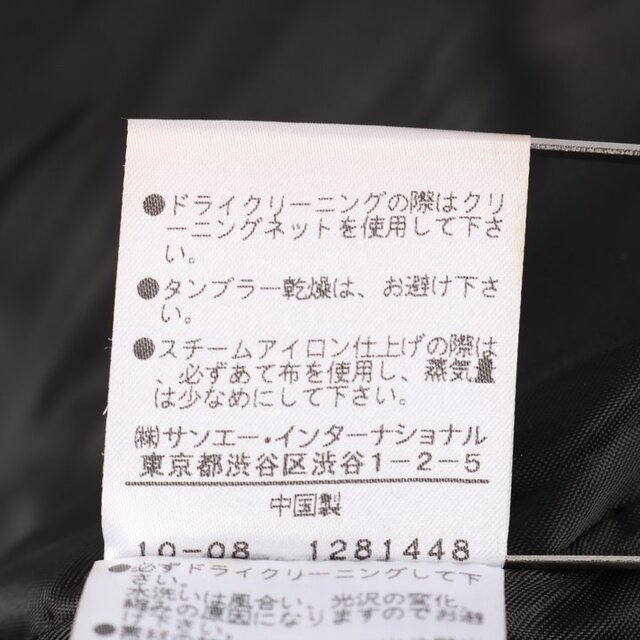 ●ドライクリーニングの際はクリ
ーニングネットを使用して下さ
い。
●タンブラー乾燥は、お避け下さ
い。
●スチームアイロン仕上げの際は
、必ずあて布を使用し、蒸気量
は少なめにして下さい。
㈱サンエー・インターナショナル
東京都渋谷区渋谷1-2-5
中国製
10-08 1281448
●必ずドライクリーニングして下
さい。
水洗いは風合い、光沢の変化、
縮みの原因になりますのでお避
け下さい。